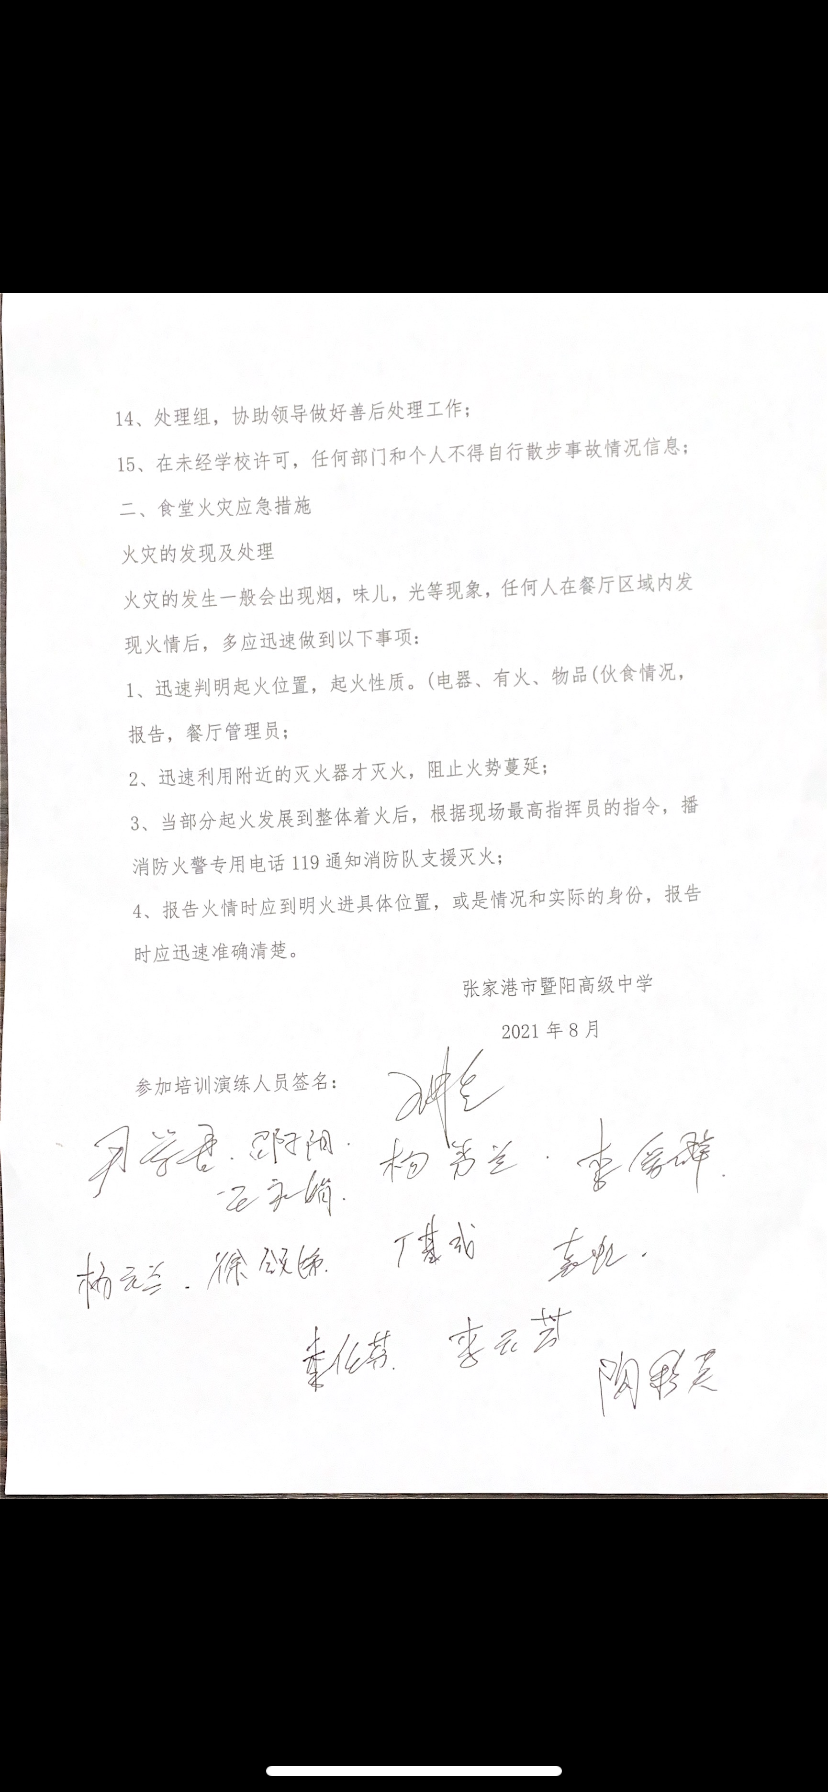 14、处理组，协助领导做好善后处理工作；
15、在未经学校许可，任何部门和个人不得自行散步事故情况信息；
二、食堂火灾应急措施
火灾的发现及处理
火灾的发生一般会出现烟，味儿，光等现象，任何人在餐厅区域内发
现火情后，多应迅速做到以下事项：
1、迅速判明起火位置，起火性质。(电器、有火、物品(伙食情况，
报告，餐厅管理员；
2、迅速利用附近的灭火器才灭火，阻止火势蔓延；
3、当部分起火发展到整体着火后，根据现场最高指挥员的指令，播
消防火警专用电话 119 通知消防队支援灭火；
4、报告火情时应到明火进具体位置，或是情况和实际的身份，报告
时应迅速准确清楚。
张家港市暨阳高级中学
2021 年 8 月
参加培训演练人员签名：
邵阳 杨芳兰
杨元兰
李云芸